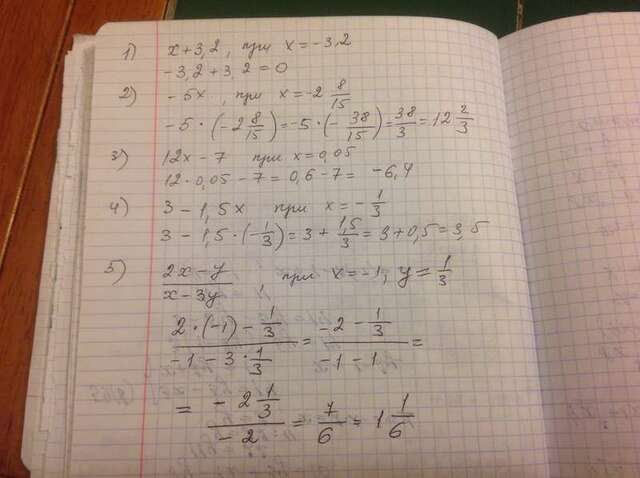 1) x+3,2, при x=-3,2
-3,2+3,2=0
2) -5x, при x=-2 8/15
-5·(-2 8/15)=-5·(-38/15)=38/3=12 2/3
3) 12x-7 при x=0,05
12·0,05-7=0,6-7=-6,4
4) 3-1,5x при x=-1/3
3-1,5·(-1/3)=3+1,5/3=3+0,5=3,5
5) (2x-y)/(x-3y) при x=-1, y=1/3
(2·(-1)-1/3)/(-1-3·1/3)=(-2-1/3)/(-1-1)=
=(-2 1/3)/(-2)=7/6=1 1/6